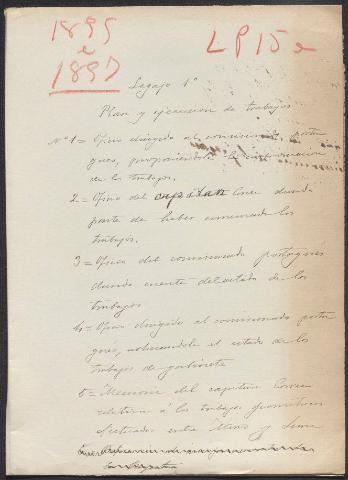 1895
a
1897
LP15e
Legajo 1º
Plan y ejecucion de trabajos
Nº 1 = Oficio dirigido al comisionado portu
gues, proponiendole la continuacion
de los trabajos.
2 = Oficio del capitan Correa dando
parte de haber comenzado los
trabajos.
3 = Oficio del comisionado portugués
dando cuenta del estado de los
trabajos
4 = Oficio dirigido al comisionado portu
gués, noticiandole el estado de los
trabajos de gabinete
5 = Memoria del capitan Correa
relativa á los trabajos geometricos
efectuados entre Miño y Lima